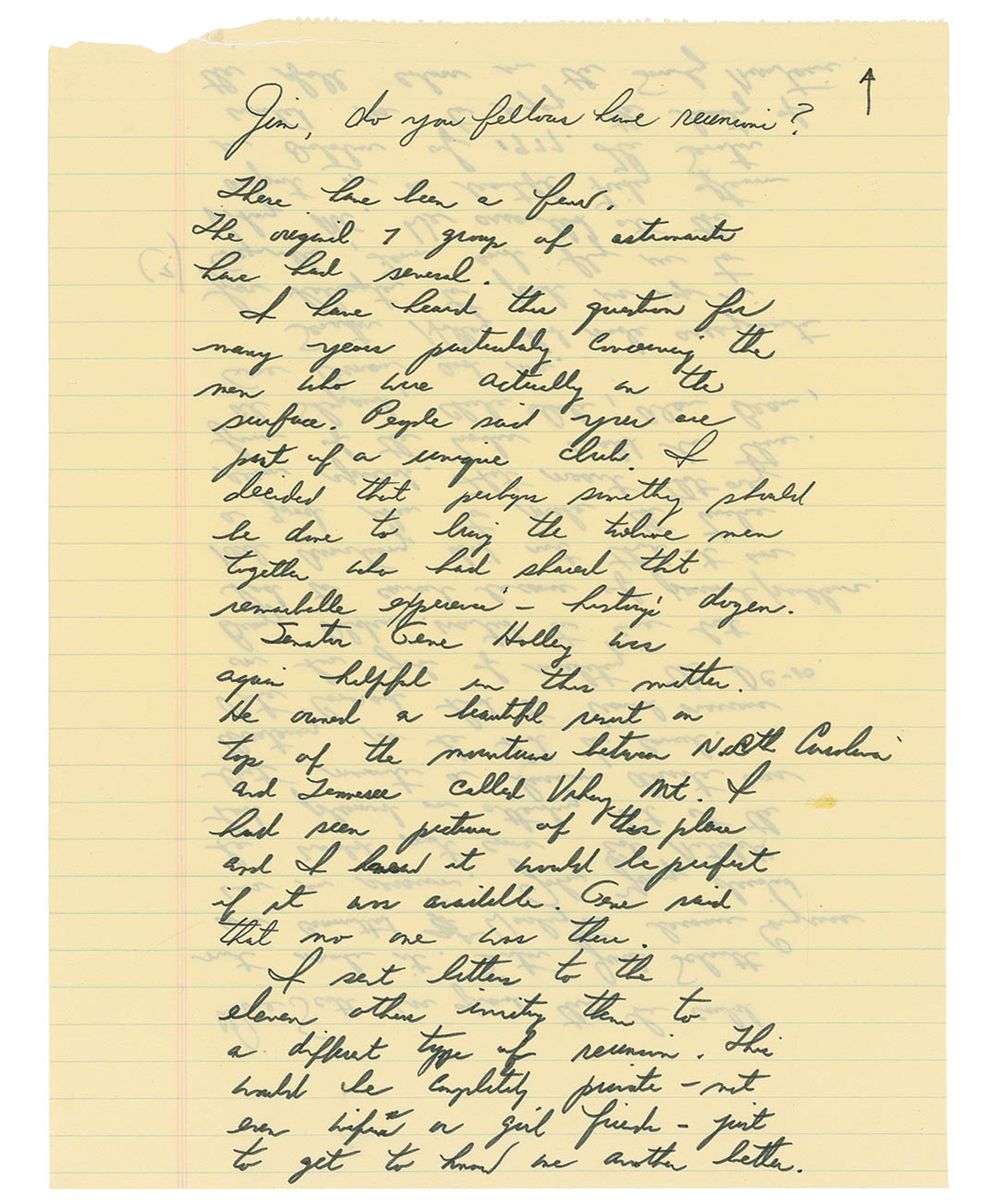 Jim, do you fellows have reunions?
There have been a few.
The original 7 group of astronauts
have had several.
I have heard this question for
many years particularly concerning the
men who were actually on the
surface. People said you are
part of a unique club. I
decided that perhaps something should
be done to bring the twelve men
together who had shared that
remarkable experience - history's dozen.
Senator Gene Holley was
again helpful in this matter.
He owned a beautiful resort on
top of the mountains between North Carolina
and Tennessee called Mt. I
had seen pictures of this place
and I knew it would be perfect
if it was available. Gene said
that no one was there.
I sent letters to the
eleven others inviting them to
a different type of reunion. This
would be completely private - not
even wives or girl friends - just
to get to know one another better.